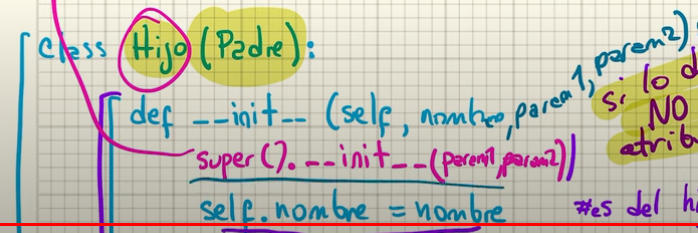 class Hijo (Padre):
def __init__ (self, nombre, param1, param2)
super().__init__(param1, param2)
self.nombre = nombre
si lo
NO
#es del